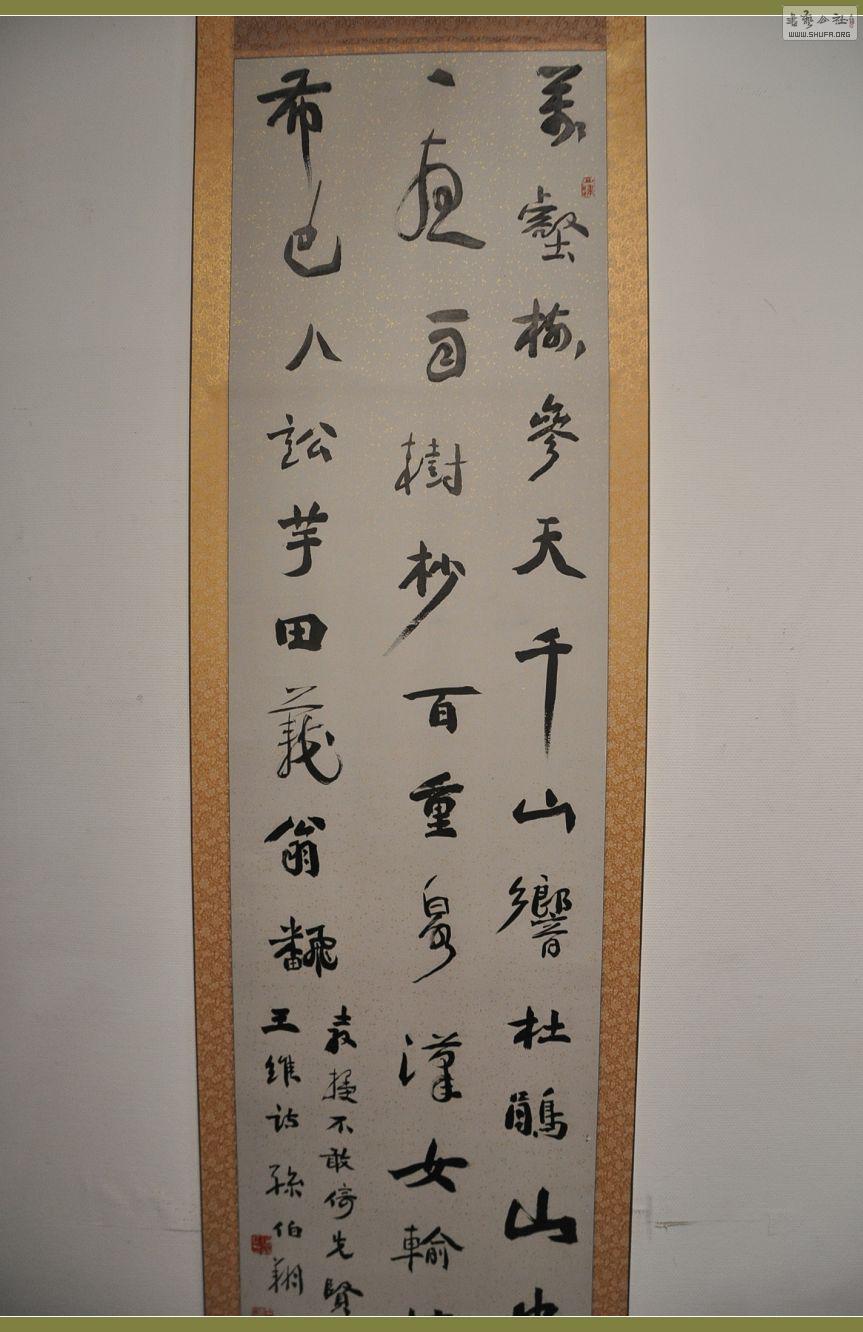 萬壑樹參天千山響杜鵑山
一夜雨樹杪百重泉漢女輸
布巴人訟芋田義翁飜
教授不敢倚先賢
王維詩孫伯翔
書藝公社
WWW.SHUFA.ORG